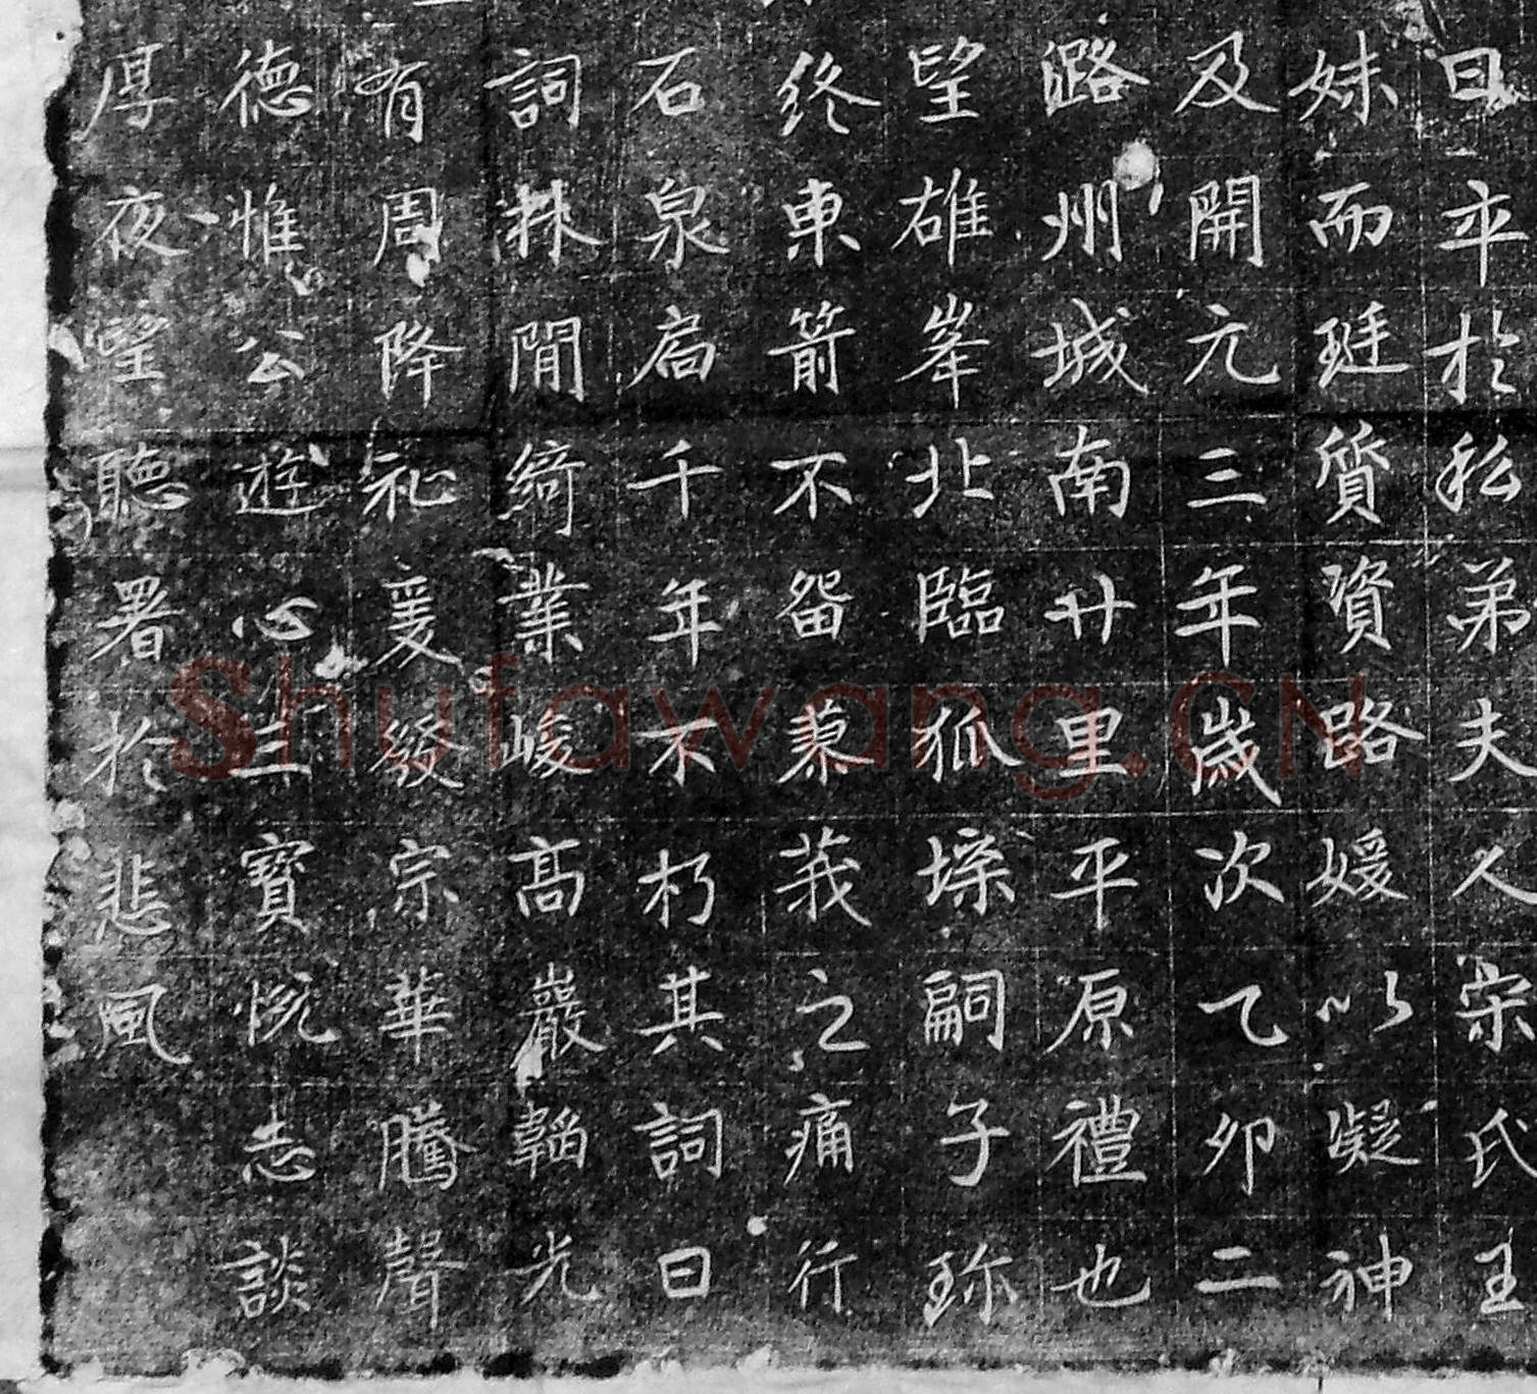 日卒於私弟夫人宋氏王
妹而珽質資路媛以凝神
及開元三年歲次乙卯二
潞州城南廿里平原禮也
望雄峯北臨狐垛嗣子珎
終東箭不留蓼莪之痛行
石泉扃千年不朽其詞曰
詞林間綺業峻高巖韜光
有周降祉爰發宗華騰聲
德惟公遊心三寶悅志談
厚夜望聽署於悲風
Shufawang.CN